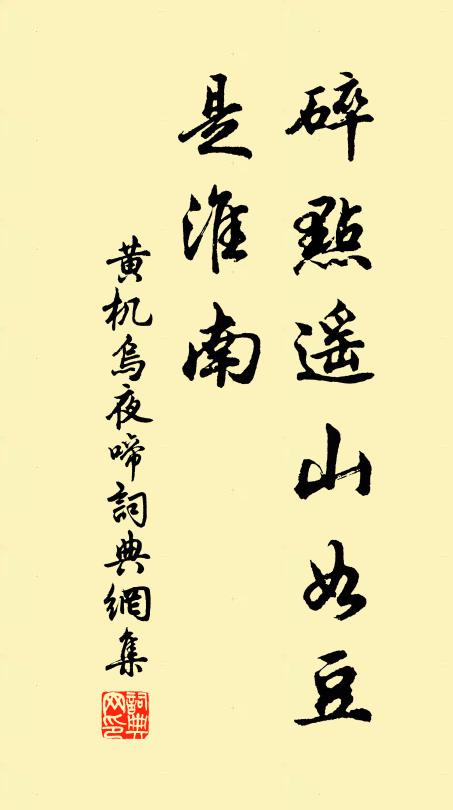 碎點遥山如豆
是淮南
黄机烏夜啼詞典網集
詞典網印